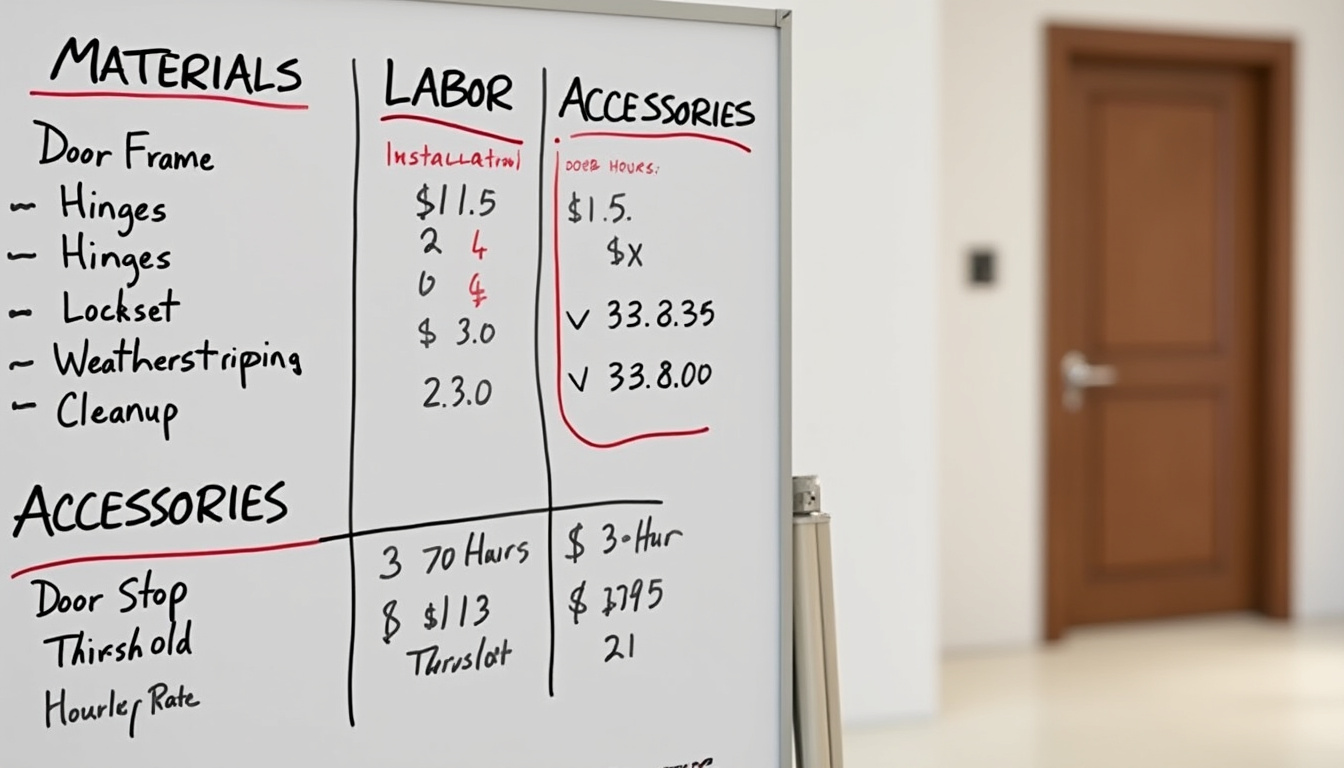 MATERIALS
Door Frame
- Hinges
- Hinges
- Lockset
- Weatherstriping
- Cleanup
ACCESSORIES
Door Stop
Thirshold
Hourley Rate
LABOR
Installation
$11.5
2 4
0
$ 3.0
2.3.0
3 70 Haurs
8 $113
ACCESSORIES
HOURS:
$1.5.
$X
v 33.8.35
v 33.8.00
$ 3-Hur
$
21